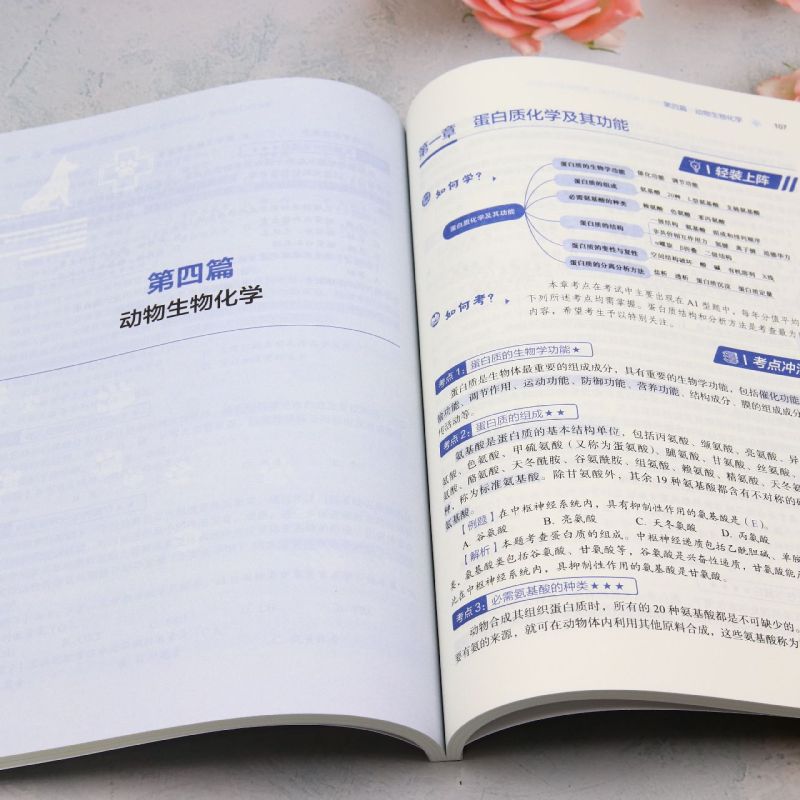 第四篇
动物生物化学
第四篇 动物生物化学 107
第一章 蛋白质化学及其功能
轻装上阵
如何学?
蛋白质化学及其功能
蛋白质的生物学功能 催化功能 调节功能
蛋白质的组成 氨基酸 20种 L型氨基酸 支链氨基酸
必需氨基酸的种类 赖氨酸 色氨酸 苯丙氨酸
蛋白质的结构 一级结构 氨基酸 组成和排列顺序
非共价相互作用力 氢键 离子键 范德华力
α螺旋 β折叠 二级结构
蛋白质的变性与复性 空间结构破坏 酸 碱 有机溶剂 X线
蛋白质的分离分析方法 盐析 透析 蛋白质沉淀 蛋白质定量
如何考?
本章考点在考试中主要出现在A1型题中,每年分值平均
下列所述考点均需掌握。蛋白质结构和分析方法是考查最为
内容,希望考生予以特别关注。
考点冲
考点1: 蛋白质的生物学功能★
蛋白质是生物体最重要的组成成分,具有重要的生物学功能,包括催化功能
输功能、调节作用、运动功能、防御功能、营养功能、结构成分、膜的组成成分
传活动等。
考点2: 蛋白质的组成★★
氨基酸是蛋白质的基本结构单位,包括丙氨酸、缬氨酸、亮氨酸、异
氨酸、色氨酸、甲硫氨酸(又称为蛋氨酸)、脯氨酸、甘氨酸、丝氨酸、
氨酸、酪氨酸、天冬酰胺、谷氨酰胺、组氨酸、赖氨酸、精氨酸、天冬
种,称为标准氨基酸。除甘氨酸外,其余19种氨基酸都含有不对称的碳
氨基酸。
【例题】在中枢神经系统内,具有抑制性作用的氨基酸是(E)。
A. 谷氨酸 B. 亮氨酸 C. 天冬氨酸 D. 丙氨酸
【解析】本题考查蛋白质的组成。中枢神经递质包括乙酰胆碱、单胺
类,氨基酸类包括谷氨酸、甘氨酸等,谷氨酸是兴奋性递质,甘氨酸能
此在中枢神经系统内,具抑制性作用的氨基酸是甘氨酸。
考点3: 必需氨基酸的种类★★★
动物合成其组织蛋白质时,所有的20种氨基酸都是不可缺少的。
要有氨的来源,就可在动物体内利用其他原料合成,这些氨基酸称为